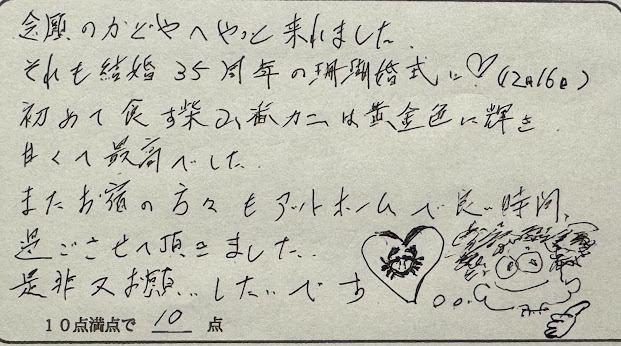 念願のかどやへやっと来れました。
それも結婚35周年の珊瑚婚式に♡(12月16日)
初めて食す柴山番カニは黄金色に輝き
甘くて最高でした。
またお宿の方々もアットホームで良い時間、
過ごさせて頂きました。
是非又お願いしたいです
10点満点で 10 点